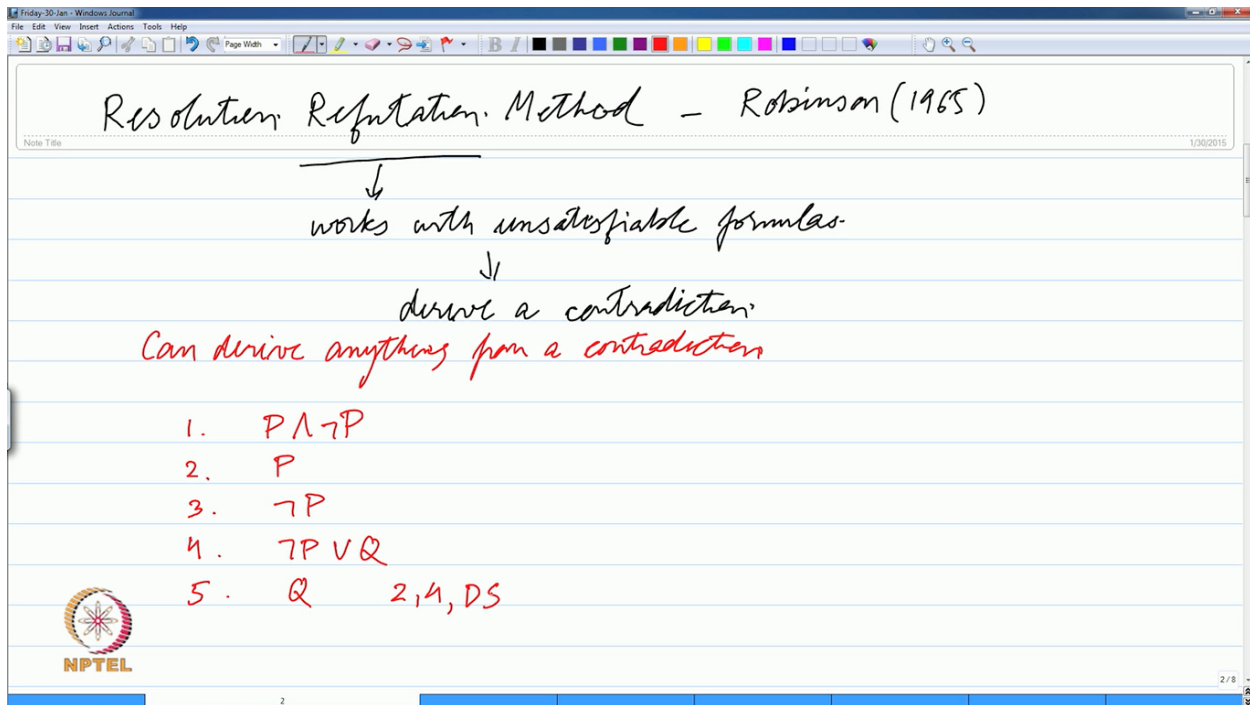 Friday-30-Jan - Windows Journal
File Edit View Insert Actions Tools Help
Page Width
B I
Resolution Refutation Method - Robinson (1965)
Note Title
1/30/2015
works with unsatisfiable formulas
derive a contradiction
Can derive anything from a contradiction
1. P ∧ ¬P
2. P
3. ¬P
4. ¬P ∨ Q
5. Q 2, 4, DS
NPTEL
2 / 8
2